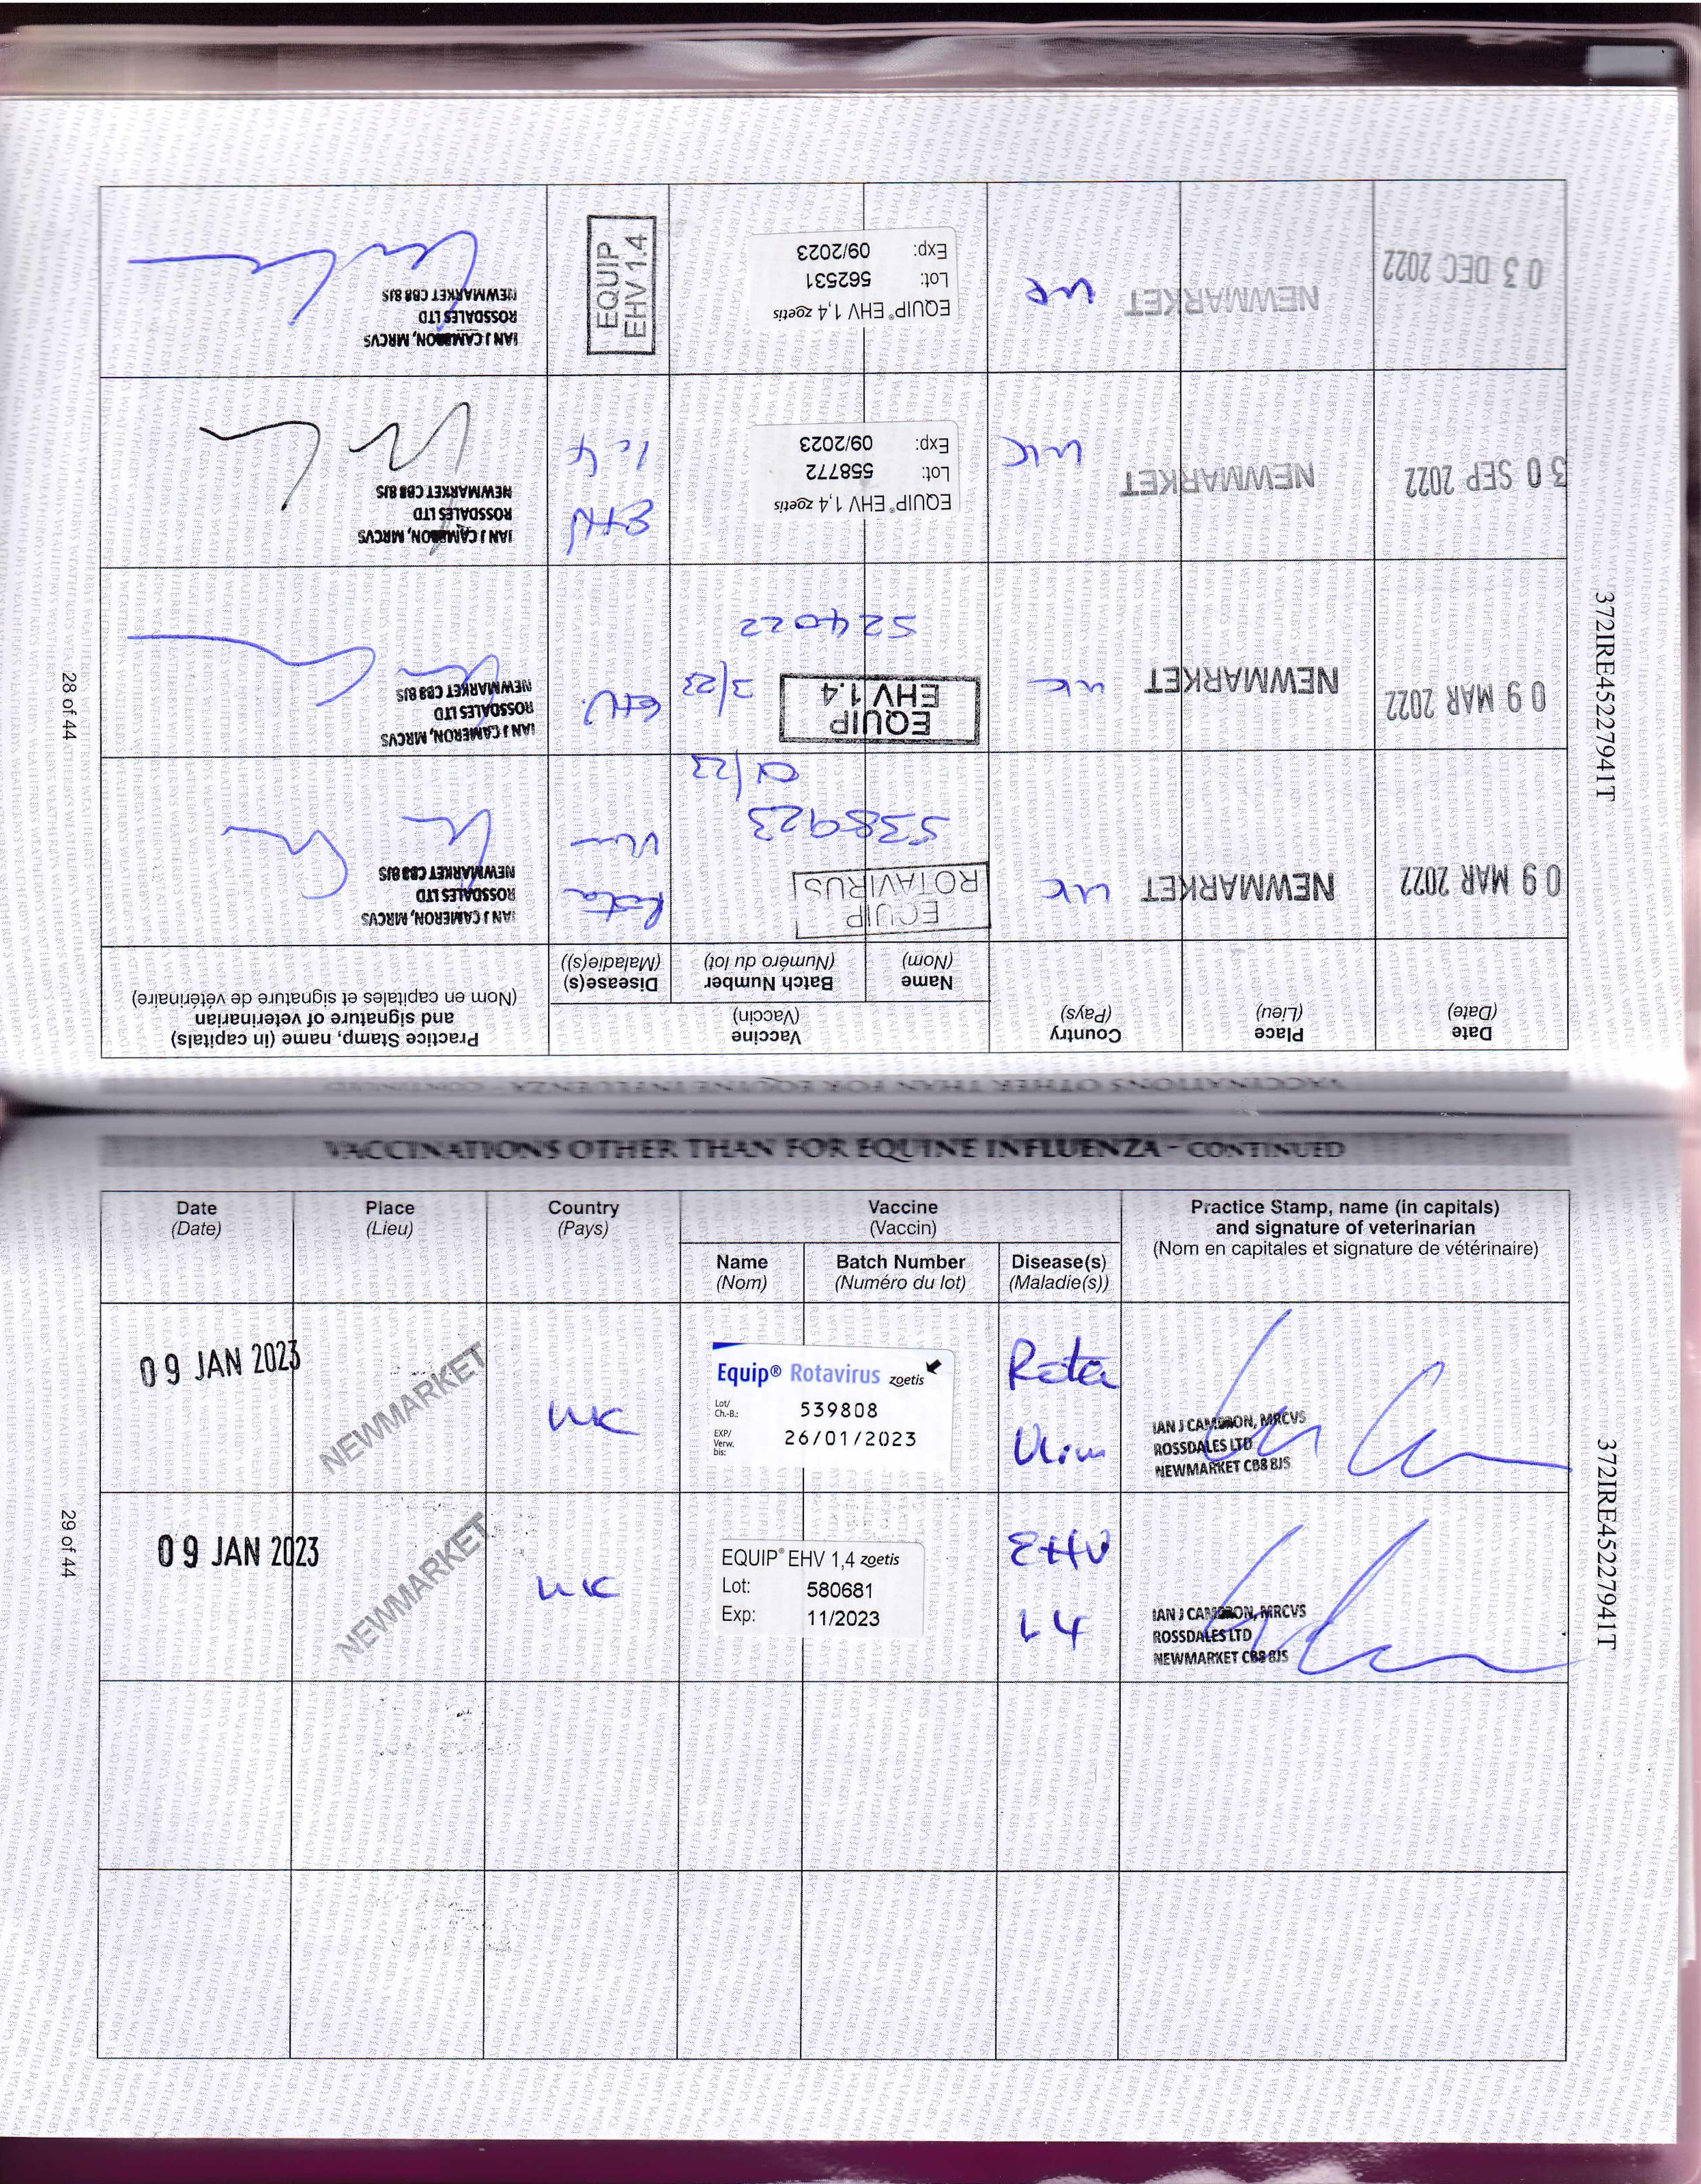 VACCINATIONS OTHER THAN FOR EQUINE INFLUENZA - CONTINUED
Date
(Date)
Place
(Lieu)
Country
(Pays)
Vaccine
(Vaccin)
Name
(Nom)
Batch Number
(Numéro du lot)
Disease(s)
(Maladie(s))
Practice Stamp, name (in capitals)
and signature of veterinarian
(Nom en capitales et signature de vétérinaire)
09 MAR 2022
NEWMARKET
UK
EQUIP
ROTAVIRUS
538923
01/23
Rota
IAN J CAMERON, MRCVS
ROSSDALES LTD
NEWMARKET CB8 8JS
09 MAR 2022
NEWMARKET
UK
EQUIP
EHV 1.4
3/23
524022
EHV
IAN J CAMERON, MRCVS
ROSSDALES LTD
NEWMARKET CB8 8JS
30 SEP 2022
NEWMARKET
UK
EQUIP® EHV 1,4 zoetis
Lot: 558772
Exp: 09/2023
EHV
1.4
IAN J CAMERON, MRCVS
ROSSDALES LTD
NEWMARKET CB8 8JS
03 DEC 2022
NEWMARKET
UK
EQUIP® EHV 1,4 zoetis
Lot: 562531
Exp: 09/2023
EQUIP
EHV 1.4
IAN J CAMERON, MRCVS
ROSSDALES LTD
NEWMARKET CB8 8JS
28 of 44
372IRE45227941T
VACCINATIONS OTHER THAN FOR EQUINE INFLUENZA - CONTINUED
Date
(Date)
Place
(Lieu)
Country
(Pays)
Vaccine
(Vaccin)
Name
(Nom)
Batch Number
(Numéro du lot)
Disease(s)
(Maladie(s))
Practice Stamp, name (in capitals)
and signature of veterinarian
(Nom en capitales et signature de vétérinaire)
09 JAN 2023
NEWMARKET
UK
Equip® Rotavirus zoetis
Lot/
Ch.-B.:
539808
EXP/
Verw.
bis:
26/01/2023
Rota
IAN J CAMERON, MRCVS
ROSSDALES LTD
NEWMARKET CB8 8JS
09 JAN 2023
NEWMARKET
UK
EQUIP® EHV 1,4 zoetis
Lot: 580681
Exp: 11/2023
EHV
1.4
IAN J CAMERON, MRCVS
ROSSDALES LTD
NEWMARKET CB8 8JS
29 of 44
372IRE45227941T